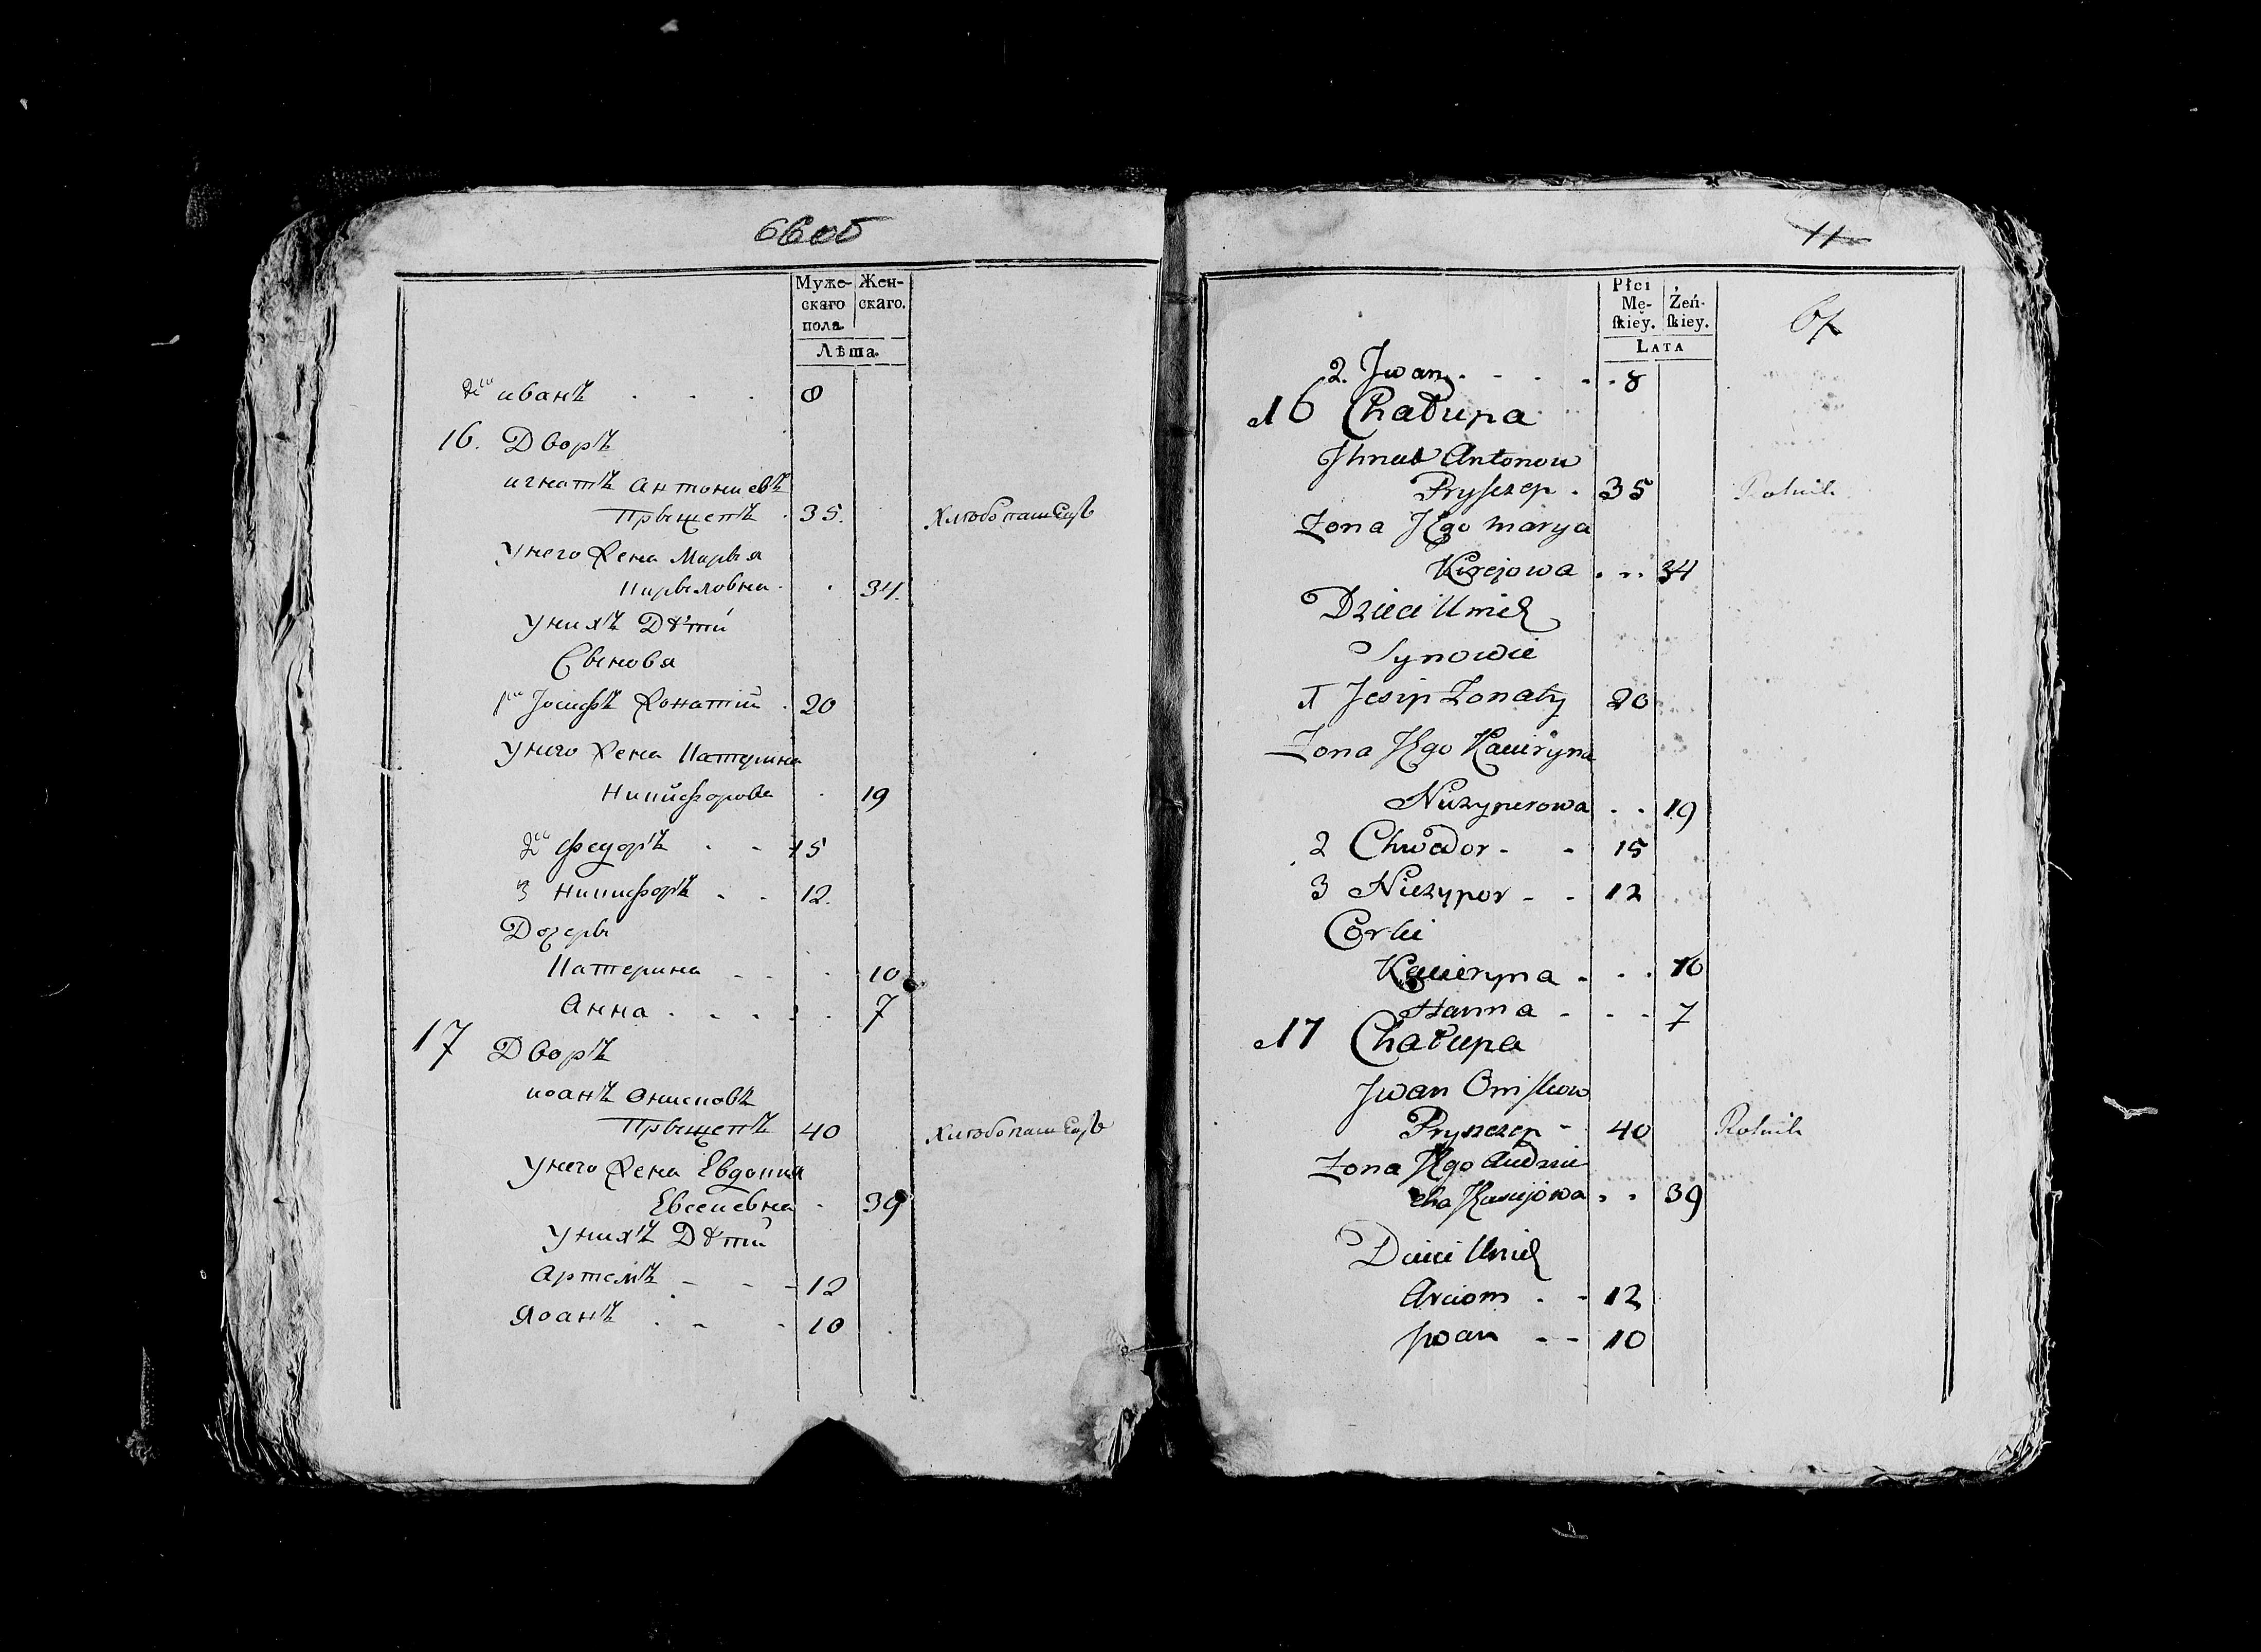 66об
Муже-
скаго
пола
Жен-
скаго.
Лѣта.
2й иванъ . . . 8
16. Дворъ
игнатъ Антониевъ
Прыщепъ . 35. Хлѣбопашецъ
У него Жена Марья
Кирыловна . . 34.
У нихъ Дѣти
Сыновя
1й Іосифъ Жонатій . 20
У него Жена Катерина
Никифорова . 19
2й Федоръ . - 15
3 Никифоръ . . 12.
Дочеры
Катерина - . . 10
Анна . . . . . 7
17 Дворъ
иоанъ Онисковъ
Прыщепъ 40 Хлѣбопашецъ
У него Жена Евдокия
Евсеиевна . 39
У нихъ Дѣти
Артемъ - - - 12
Иоанъ . - - 10
11
Płci
Mę-
ſkiey.
Żeń-
ſkiey.
LATA
67
2. Jwan . - . . . 8
16 Chałupa
Jhnat Antonow
Pryszczep . 35 Rolnik
Żona Jego Marya
Kirejowa . . . 34
Dzieci Unich
Synowie
1 Jesip Żonaty 20
Żona Jego Kacieryna
Niczyperowa . . 19
2 Chwedor - - 15
3 Niczypor - - 12
Córki
Kacieryna . . . 10
Hanna - - - 7
17 Chałupa
Jwan Oniskow
Pryszczep - 40 Rolnik
Żona Jego Audzie
cha . . 39
Dzieci Unich
Arciom . - 12
Jwan - - 10